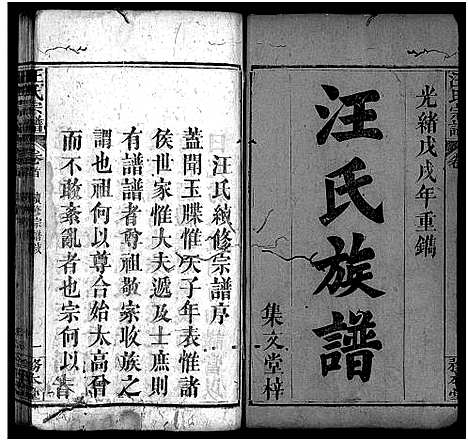 光緒戊戌年重鐫
汪氏族譜
集文堂梓
汪氏續修宗譜序
蓋聞玉牒惟天子年表惟諸
侯世家惟大夫遞及士庶則
有譜譜者尊祖敬宗收族之
謂也祖何以尊合始太高曾
而不敢紊亂者也宗何以
汪氏宗譜
卷首
一